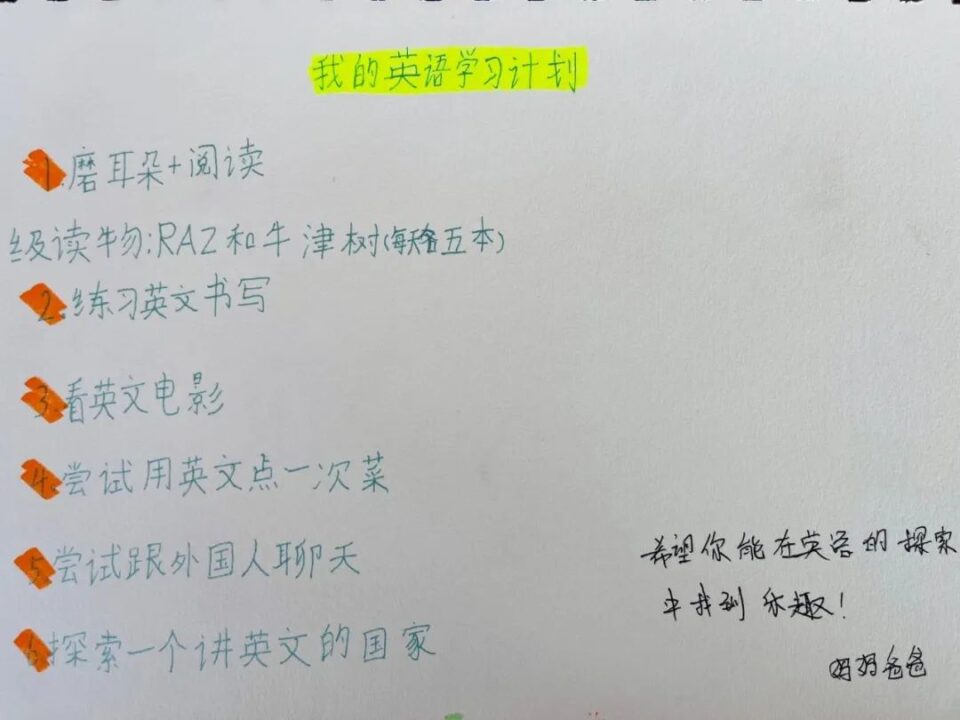 我的英语学习计划
1.磨耳朵+阅读
级读物:RAZ和牛津树(每天各五本)
2.练习英文书写
3.看英文电影
4.尝试用英文点一次菜
5.尝试跟外国人聊天
6.探索一个讲英文的国家
希望你能在英语的探索
中找到乐趣!
妈妈爸爸